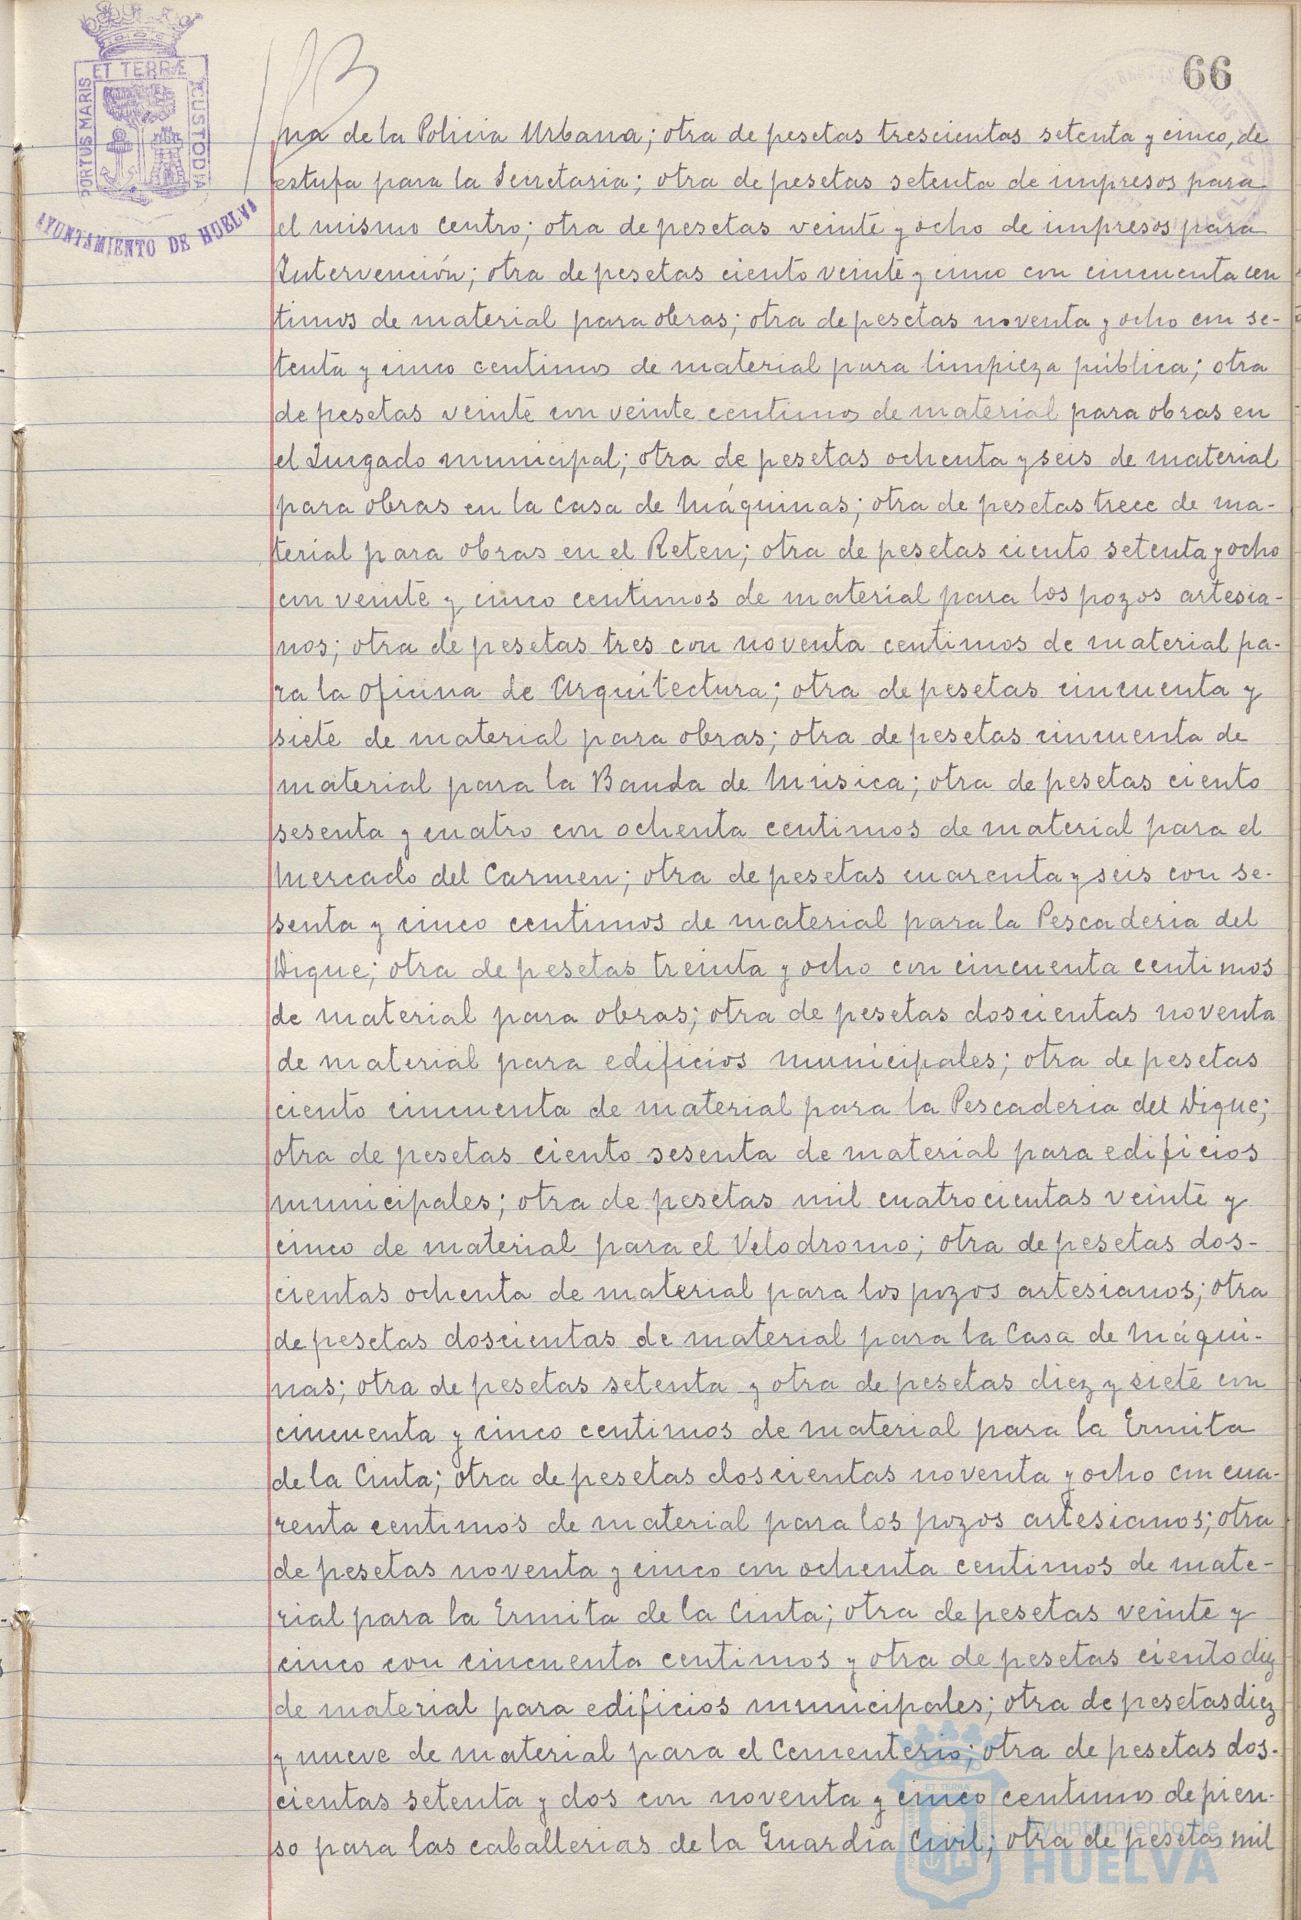 66
PORTUS MARIS ET TERRÆ CUSTODIA
AYUNTAMIENTO DE HUELVA
na de la Policia Urbana; otra de pesetas trescientas setenta y cinco, de
estufa para la Secretaria; otra de pesetas setenta de impresos para
el mismo centro; otra de pesetas veinte y ocho de impresos para
Intervención; otra de pesetas ciento veinte y cinco con cincuenta cen
timos de material para obras; otra de pesetas noventa y ocho con se-
tenta y cinco centimos de material para limpieza pública; otra
de pesetas veinte con veinte centimos de material para obras en
el Juzgado municipal; otra de pesetas ochenta y seis de material
para obras en la Casa de Máquinas; otra de pesetas trece de ma-
terial para obras en el Reten; otra de pesetas ciento setenta y ocho
con veinte y cinco centimos de material para los pozos artesia-
nos; otra de pesetas tres con noventa centimos de material pa-
ra la Oficina de Arquitectura; otra de pesetas cincuenta y
siete de material para obras; otra de pesetas cincuenta de
material para la Banda de Música; otra de pesetas ciento
sesenta y cuatro con ochenta centimos de material para el
Mercado del Carmen; otra de pesetas cuarenta y seis con se-
senta y cinco centimos de material para la Pescaderia del
Dique; otra de pesetas treinta y ocho con cincuenta centimos
de material para obras; otra de pesetas doscientas noventa
de material para edificios municipales; otra de pesetas
ciento cincuenta de material para la Pescaderia del Dique;
otra de pesetas ciento sesenta de material para edificios
municipales; otra de pesetas mil cuatrocientas veinte y
cinco de material para el Velodromo; otra de pesetas dos-
cientas ochenta de material para los pozos artesianos; otra
de pesetas doscientas de material para la Casa de Máqui-
nas; otra de pesetas setenta y otra de pesetas diez y siete con
cincuenta y cinco centimos de material para la Ermita
de la Cinta; otra de pesetas doscientas noventa y ocho con cua-
renta centimos de material para los pozos artesianos; otra
de pesetas noventa y cinco con ochenta centimos de mate-
rial para la Ermita de la Cinta; otra de pesetas veinte y
cinco con cincuenta centimos y otra de pesetas ciento diez
de material para edificios municipales; otra de pesetas diez
y nueve de material para el Cementerio; otra de pesetas dos-
cientas setenta y dos con noventa y cinco centimos de pien-
so para las caballerias de la Guardia Civil; otra de pesetas mil
Ayuntamiento de
HUELVA